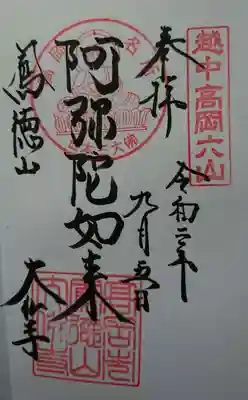 越中高岡六山
奉拝
令和二年
九月五日
阿弥陀如来
鳳徳山
大仏寺